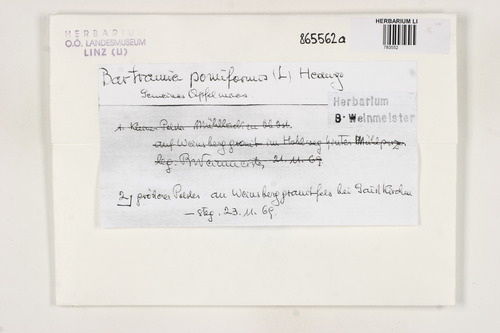 HERBARIUM
O.Ö. LANDESMUSEUM
LINZ (LI)
865562a
HERBARIUM LI
Bartramia pomiformis (L) Hedwg
Gemeines Apfelmoos
Herbarium
B. Weinmeister
1. Kleiner Polster
auf Weinsberggranit im Hohlweg hinter
leg. B Weinmeister, 21.11.69
2) größerer Polster an Weinsberggranitfels bei
– leg. 23.11.69.